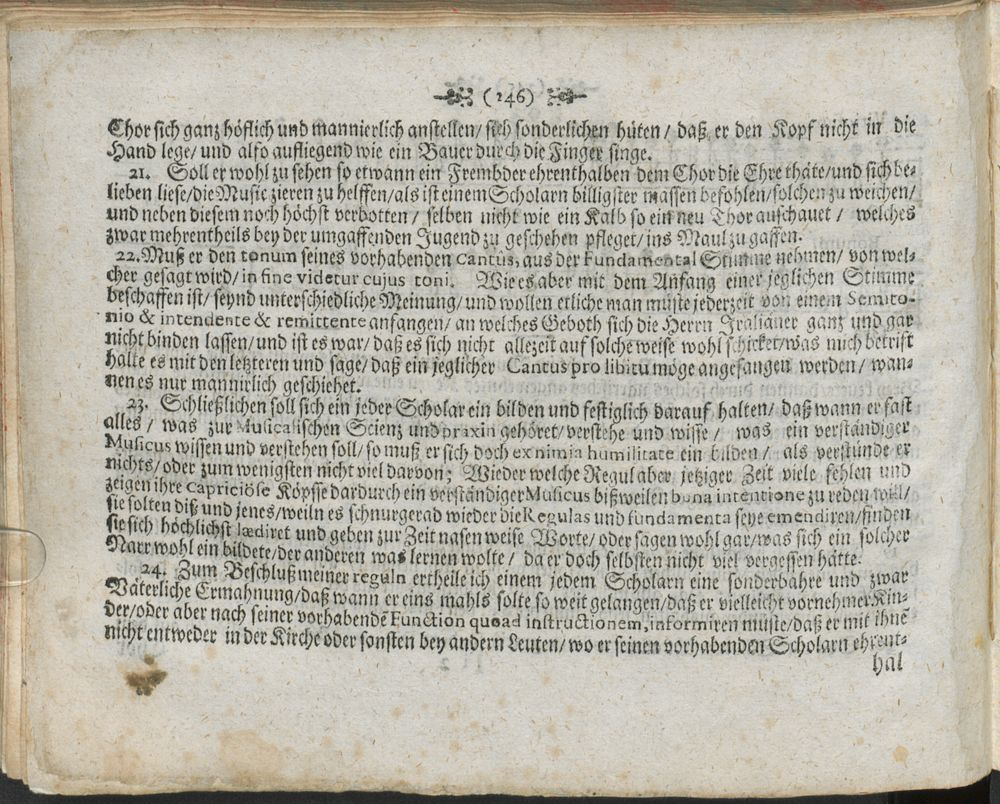 (246)
Chor sich ganz höflich und mannierlich anstellen/ sich sonderlichen hüten/ daß er den Kopf nicht in die
Hand lege/ und also aufliegend wie ein Bauer durch die Finger singe.
21. Soll er wohl zu sehen so etwann ein Frembder ehrenthalben dem Chor die Ehre thäte/ und sich be-
lieben liese/ die Music zieren zu helffen/ als ist einem Scholarn billigster massen befohlen/ solchen zu weichen/
und neben diesem noch höchst verbotten/ selben nicht wie ein Kalb so ein neu Thor anschauet/ welches
zwar mehrentheils bey der umgaffenden Jugend zu geschehen pfleget/ ins Maul zu gaffen.
22. Muß er den tonum seines vorhabenden Cantûs, aus der Fundamental Stimme nehmen/ von wel-
cher gesagt wird/ in fine videtur cujus toni. Wie es aber mit dem Anfang einer jeglichen Stimme
beschaffen ist/ seynd unterschiedliche Meinung/ und wollen etliche man müste jederzeit von einem Semito-
nio & intendente & remittente anfangen/ an welches Geboth sich die Herrn Italiäner ganz und gar
nicht binden lassen/ und ist es war/ daß es sich nicht allezeit auf solche weise wohl schicket/ was mich betrift
halte es mit den letzteren und sage/ daß ein jeglicher Cantus pro libitu möge angefangen werden/ wan-
nen es nur mannirlich geschiehet.
23. Schließlichen soll sich ein jeder Scholar ein bilden und festiglich darauf halten/ daß wann er fast
alles/ was zur Musicalischen Scienz und praxin gehöret/ verstehe und wisse/ was ein verständiger
Musicus wissen und verstehen soll/ so muß er sich doch ex nimia humilitate ein bilden/ als verstünde er
nichts/ oder zum wenigsten nicht viel darvon; Wieder welche Regul aber jetziger Zeit viele fehlen und
zeigen ihre Capriciöse Köpffe dardurch ein verständiger Musicus bißweilen bona intentione zu reden will/
sie solten diß und jenes/ weiln es schnurgerad wieder die Regulas und fundamenta seye emendiren/ finden
sie sich höchlichst lædiret und geben zur Zeit nasenweise Worte/ oder sagen wohl gar/ was sich ein solcher
Narr wohl ein bildete/ der anderen was lernen wolte/ da er doch selbsten nicht viel vergessen hätte.
24. Zum Beschluß meiner reguln ertheile ich einem jedem Scholarn eine sonderbahre und zwar
Väterliche Ermahnung/ daß wann er eins mahls solte so weit gelangen/ daß er vielleicht vornehmer Kin-
der/ oder aber nach seiner vorhabendẽ Function quoad instructionem, informiren müste/ daß er mit ihnẽ
nicht entweder in der Kirche oder sonsten bey andern Leuten/ wo er seinen vorhabenden Scholarn ehrent-
hal